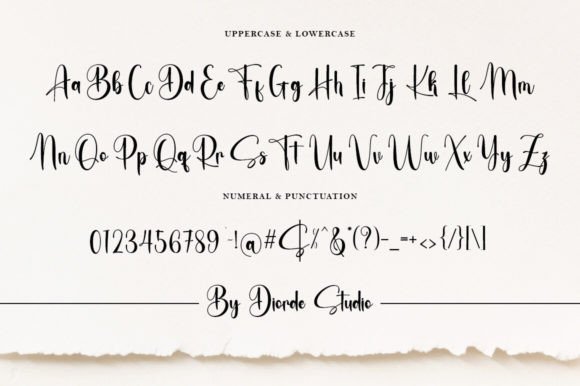 UPPERCASE & LOWERCASE
Aa Bb Cc Dd Ee Ff Gg Hh Ii Jj Kk Ll Mm
Nn Oo Pp Qq Rr Ss Tt Uu Vv Ww Xx Yy Zz
NUMERAL & PUNCTUATION
0123456789 !@#$%^&*(?)-_=+<>{/}|\|
By Diorde Studio